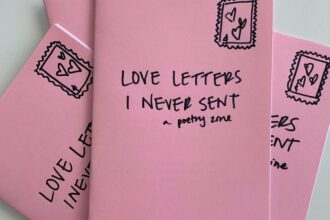 LOVE LETTERS
I NEVER SENT
a poetry zine
LOVE LETTERS
I NEVER
LETTERS
ER SENT
zine